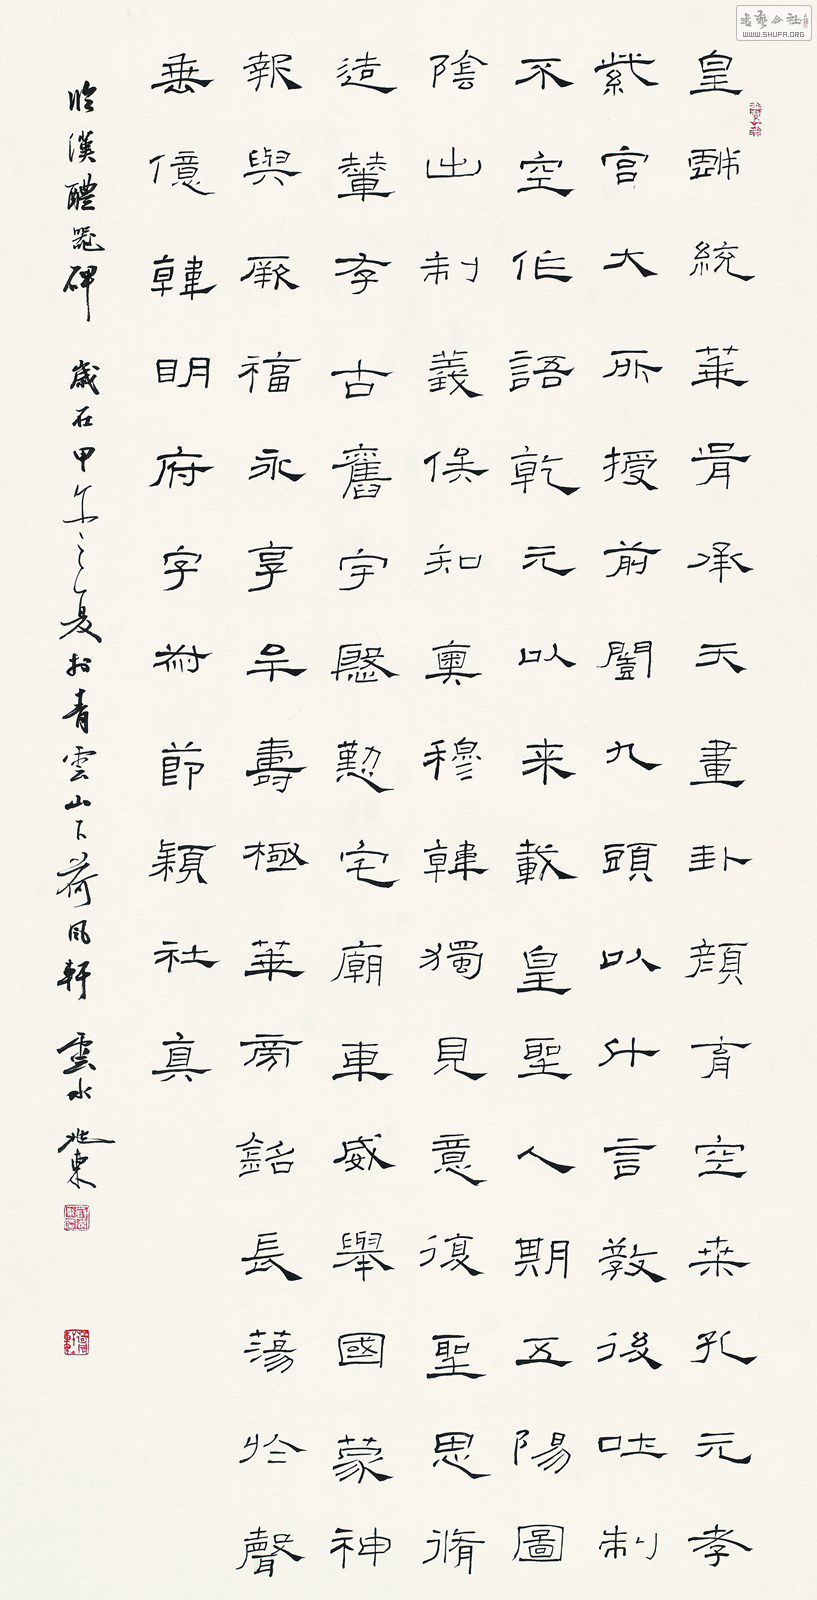 皇戲統華胥承天畫卦顏育空桑孔元孝
紫宮大所授前闓九頭以什言教後吐制
不空作語乾元以来載皇聖人期五陽圖
陰出制義俟知奧穆韓獨見意復聖思脩
造輦存古舊宇慇懃宅廟車威舉國蒙神
報與厥福永享牟壽極華旁銘長蕩於聲
垂億韓明府字叔節穎社真
臨漢醴器碑 歲在甲午之夏於青雲山下荷風軒 雲水兆東
书艺公社
WWW.SHUFA.ORG